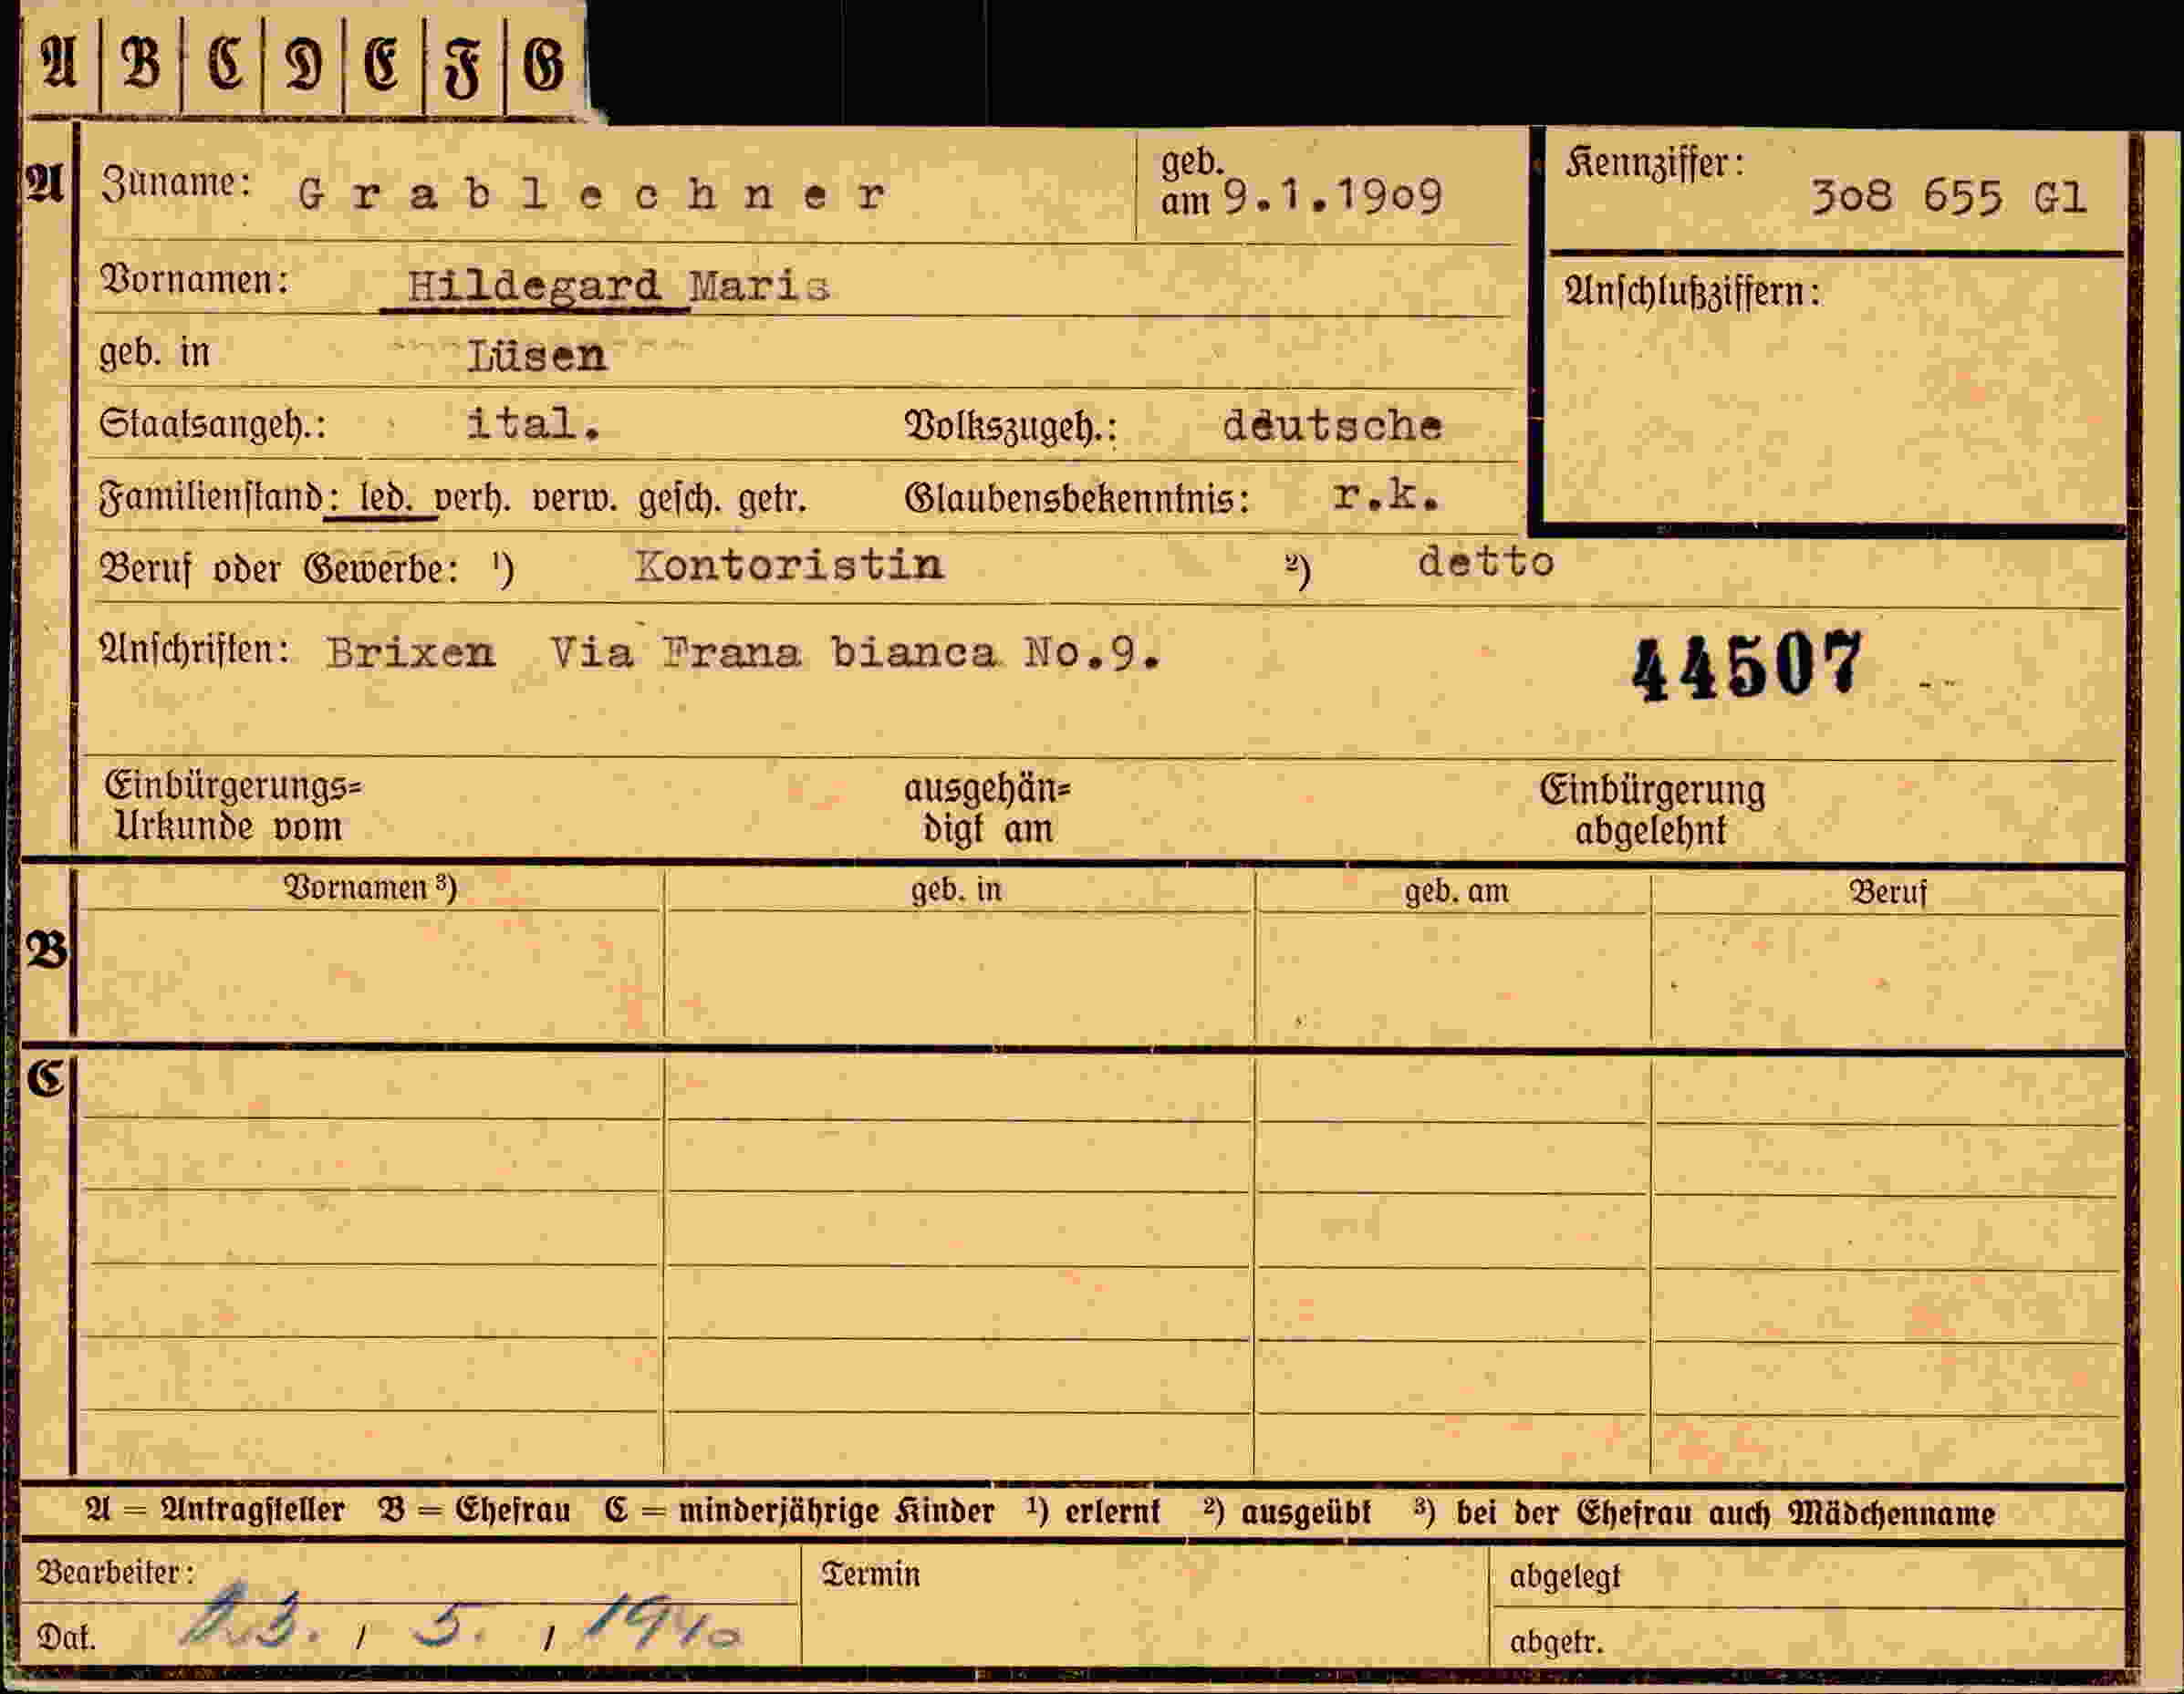 A B C D E F G
A Zuname: Grablechner geb. am 9.1.1909 Kennziffer: 308 655 Gl
Vornamen: Hildegard Maria Anschlußziffern:
geb. in Lüsen
Staatsangeh.: ital. Volkszugeh.: deutsche
Familienstand: led. verh. verw. gesch. getr. Glaubensbekenntnis: r.k.
Beruf oder Gewerbe: ¹) Kontoristin ²) detto
Anschriften: Brixen Via Frana bianca No.9. 44507
Einbürgerungs= ausgehän= Einbürgerung
Urkunde vom digt am abgelehnt
Vornamen ³) geb. in geb. am Beruf
B
C
A = Antragsteller B = Ehefrau C = minderjährige Kinder ¹) erlernt ²) ausgeübt ³) bei der Ehefrau auch Mädchenname
Bearbeiter: Termin abgelegt
Dat. 23. / 5. / 1940 abgetr.